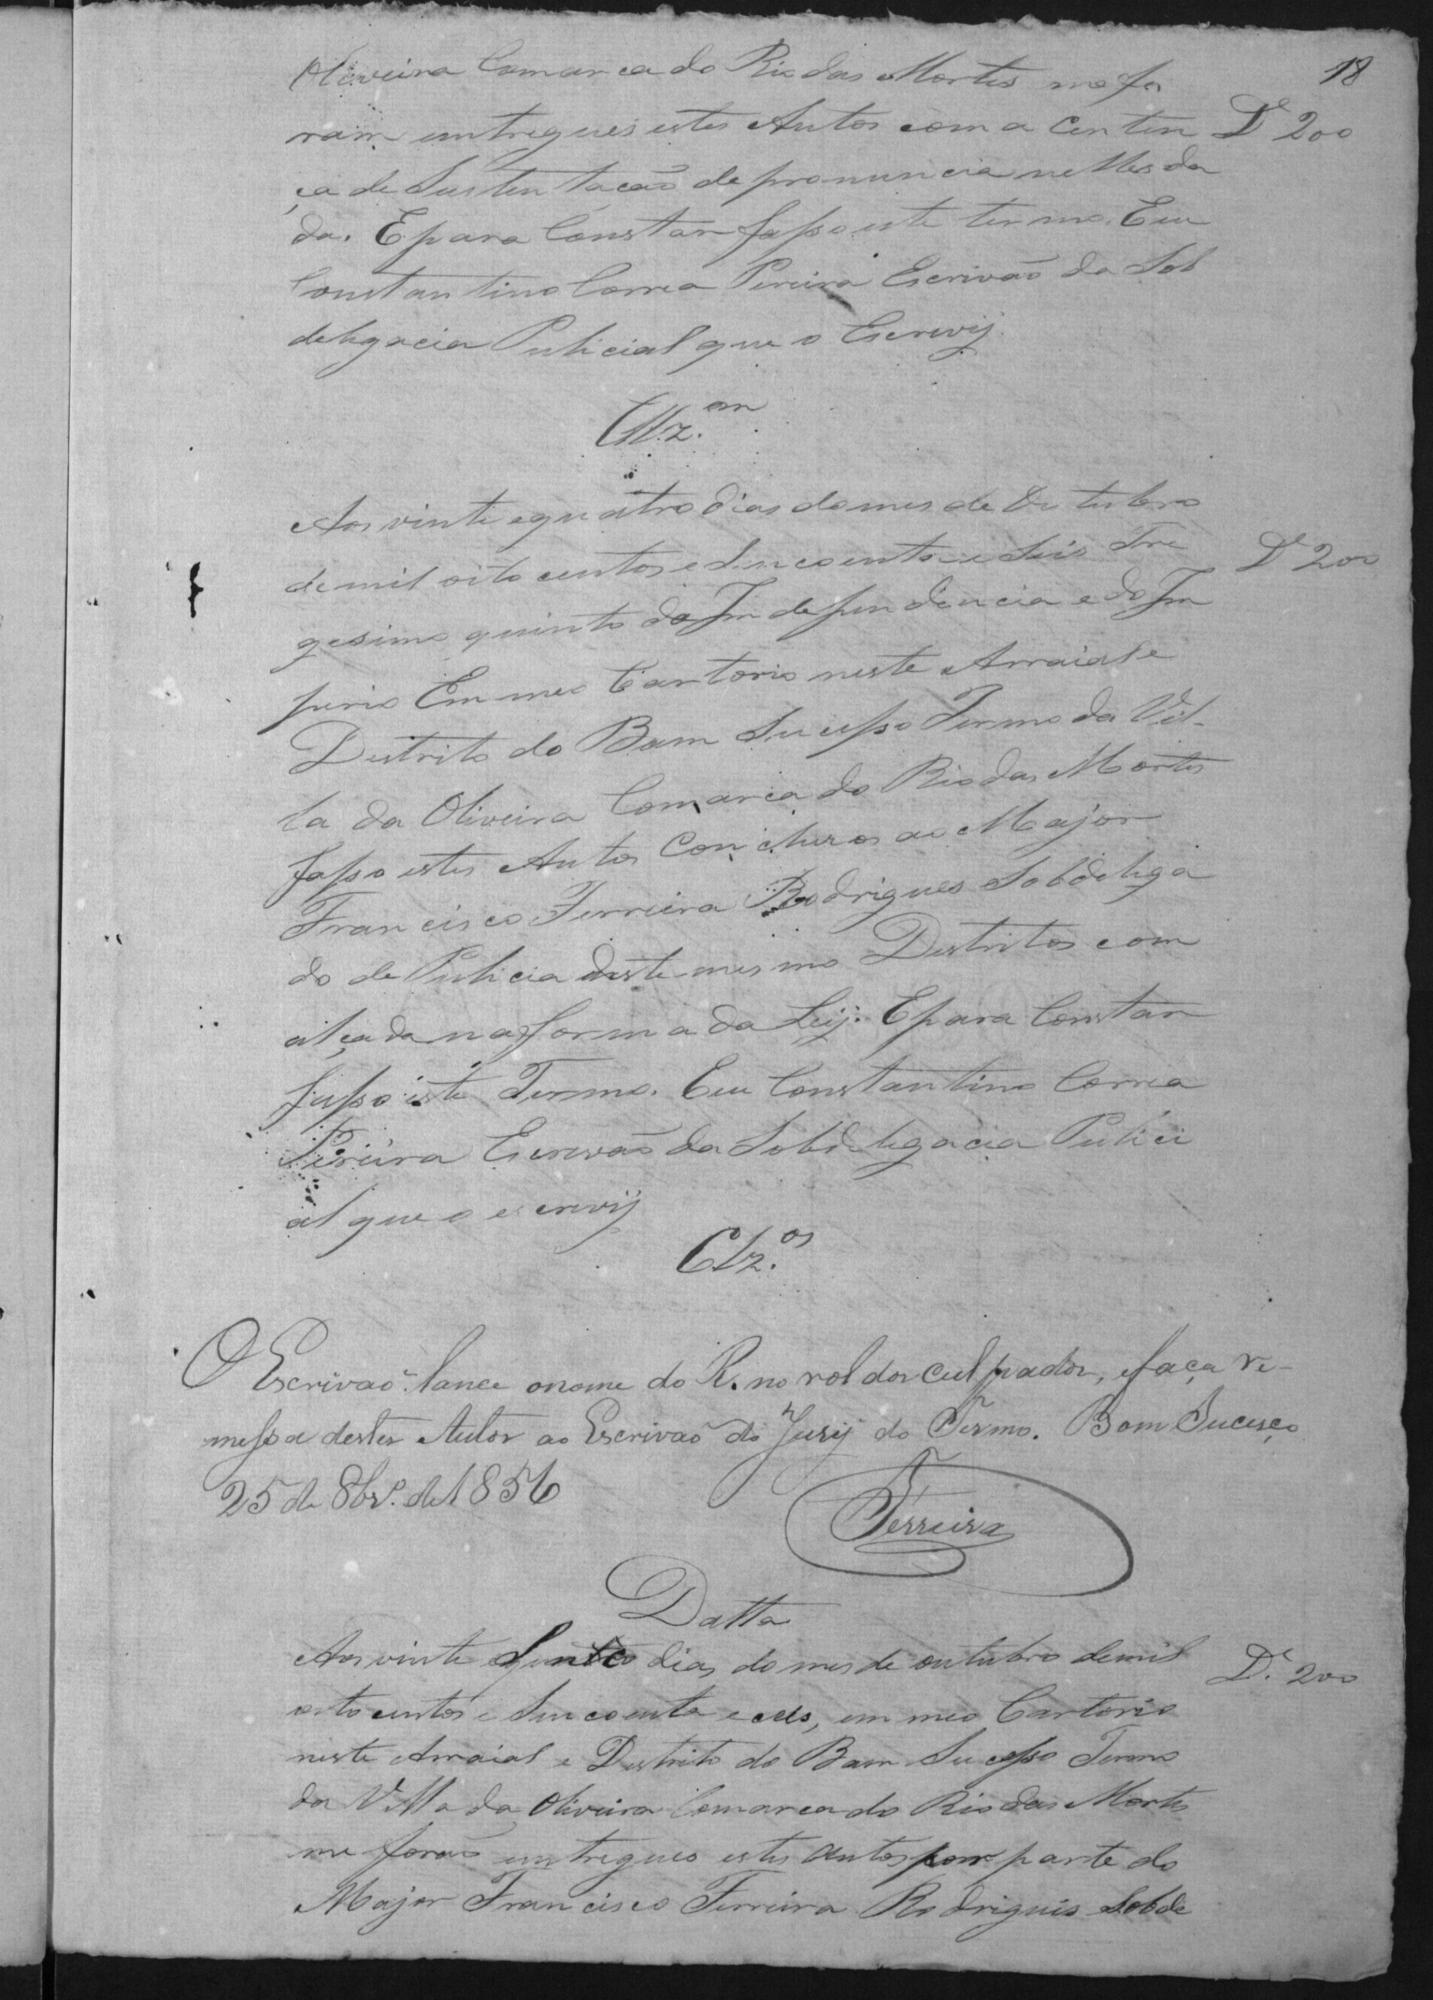 18
Oliveira Comarca do Rio das Mortes me fo
ram entregues estes Autos com a Centen D.e 200
ça de Sustentacão de pronuncia nelles da
da. E para Constar fasso este termo. Eu
Constantino Correa Pereira Escrivão da Sob
delegacia Pulicial que o Escrevij.
Aos vinte e quatro dias do mes de Outubro
de mil oito centos e Sincoenta e Seis Tre D.e 200
gesimo quinto da Independencia e do Im
perio Em meo Cartorio neste Arraial e
Destrito do Bam Sucesso Termo da Vil-
la da Oliveira Comarca do Rio das Mortes
fasso estes Autos Concluzos ao Major
Francisco Ferreira Rodrigues Sobdelega
do de Pulicia deste mesmo Destritos com
alçada na forma da Leij. E para Constar
fasso este Termo. Eu Constantino Correa
Pereira Escrevão da Sobdelegacia Pulici
al que o escrevij
Clz.os
O Escrivaõ lance o nome do R. no rol dos culpados, e faça re-
messa destes Autos ao Escrivaõ do Jurij do Termo. Bom Sucesço
25 de 8br.o de 1856
Ferreira
Datta
Aos vinte Sinco dias do mes de outubro de mil D.e 200
oito centos e Sincoenta e ceis, em meo Cartorio
neste Arraial e Destrito do Bam Sucesso Termo
da Villa da Oliveira Comarca do Rio das Mortes
me foraõ entregues estes autos por parte do
Major Francisco Ferreira Rodrigues Sobde